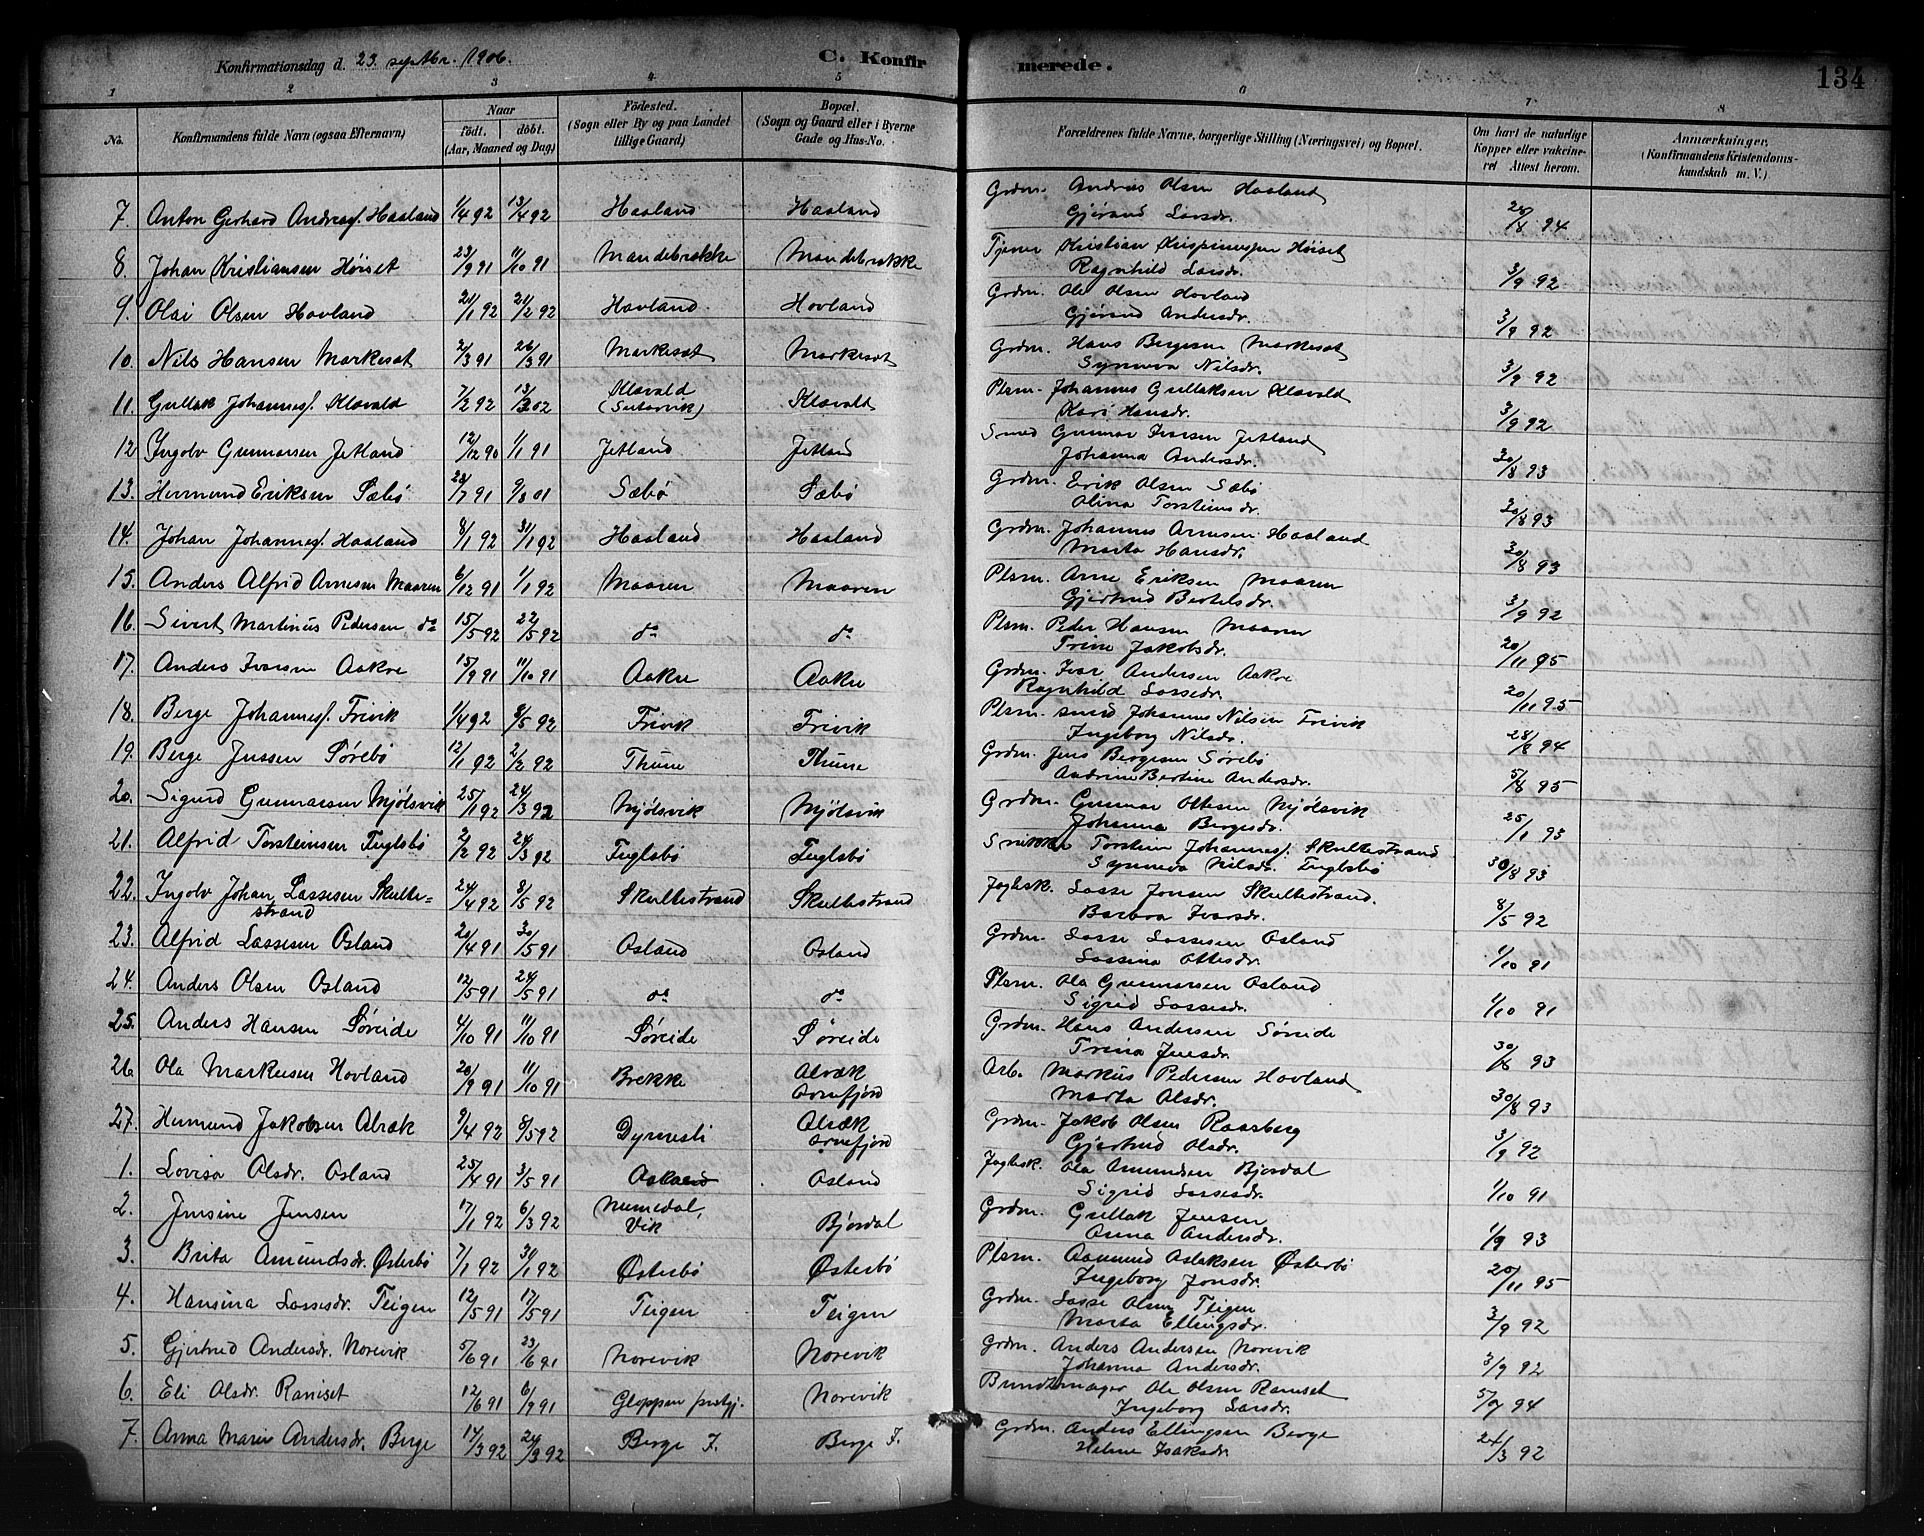 Konfirmationsdag d. 23. septbr. 1906. C. Konfir merede. 134
1 2 3 4 5 6 7 8
No. Konfirmandens fulde Navn (ogsaa Efternavn) Naar født. døbt. (Aar, Maaned og Dag) Fødested. (Sogn eller By og paa Landet tillige Gaard) Bopæl. (Sogn og Gaard eller i Byerne Gade og Hus-No. Forældrenes fulde Navne, borgerlige Stilling (Næringsvei) og Bopæl. Om havt de naturlige Kopper eller vakcineret Attest herom. Anmærkninger. (Konfirmandens Kristendomskundskab m. V.)
7. Anton Gerhard Andreasf. Haaland 1/4 92 13/4 92 Haaland Haaland Grdm. Andreas Olsen Haaland
Gjørond Larsdr. 28/8 94
8. Johan Kristiansen Høiset 23/9 91 11/10 91 Mandebrekke Mandebrekke Tjener Kristian Krispinusen Høiset
Ragnhild Larsdr. 3/9 92
9. Olai Olsen Hovland 21/1 92 21/2 92 Hovland Hovland Grdm. Ole Olsen Hovland
Gjørond Andersdr. 3/9 92
10. Nils Hansen Markeset 2/3 91 26/3 91 Markeset Markeset Grdm. Hans Bergesen Markeset
Synneva Nilsdr. 3/9 92
11. Gullak Johannesf. Klævold 7/2 92 13/3 02 Klævold
(Sutarvik) Klævold Plsm. Johannes Gullaksen Klævold
Kari Hansdr. 3/9 92
12 Ingolv Gunnarsen Jetland 12/12 90 1/1 91 Jetland Jetland Smed Gunnar Ivarsen Jetland
Johanna Andersdr. 30/8 93
13. Hermund Eriksen Sæbø 28/7 91 9/8 01 Sæbø Sæbø Grdm. Erik Olsen Sæbø
Olina Torsteinsdr. 30/8 93
14. Johan Johannesf. Haaland 8/1 92 31/1 92 Haaland Haaland Grdm. Johannes Arnesen Haaland
Marta Hansdr. 30/8 93
15. Anders Alfrid Arnesen Maaren 6/12 91 1/1 92 Maaren Maaren Plsm. Arne Eriksen Maaren
Gjertrud Bertelsdr. 3/9 92
16. Sivert Martinus Pedersen do 15/5 92 22/5 92 do do Plsm. Peder Hansen Maaren
Trine Jakobsdr. 20/11 95
17. Anders Ivarsen Aakre 15/9 91 11/10 91 Aakre Aakre Grdm. Ivar Andersen Aakre
Ragnhild Lassesdr. 20/11 95
18. Berge Johannesf. Frivik 1/4 92 8/5 92 Frivik Frivik Plsm. smed Johannes Nilsen Frivik
Ingeborg Nilsdr. 28/8 94
19. Berge Jensen Sørebø 12/1 92 2/2 92 Thune Thune Grdm. Jens Bergesen Sørebø
Andrine Bertine Andersdr. 5/8 95
20. Sigurd Gunnarsen Mjølsvik 25/1 92 24/3 92 Mjølsvik Mjølsvik Grdm. Gunnar Ottesen Mjølsvik
Johanna Bergesdr. 25/1 93
21. Alfrid Torsteinsen Fuglsbø 2/2 92 24/3 92 Fuglsbø Fuglsbø Snikker Torstein Johannesf. Skultestrand
Synneva Nilsdr. Fuglsbø 30/8 93
22. Ingolv Johan Lassesen Skulte-
strand 24/4 92 8/5 92 Skultestrand Skultestrand Jagtsk. Lasse Jonsen Skultestrand.
Barbra Ivarsdr. 8/5 92
23. Alfrid Lassesen Osland 20/4 91 30/5 91 Osland Osland Grdm. Lasse Lassesen Osland
Lassina Ottesdr. 1/10 91
24. Anders Olsen Osland 12/5 91 24/5 91 do do Plsm. Ola Gunnarsen Osland
Sigrid Lassesdr. 1/10 91
25. Anders Hansen Søreide 4/10 91 11/10 91 Søreide Søreide Grdm. Hans Andersen Søreide
Trina Jensdr. 30/8 93
26 Ola Markusen Hovland 20/9 91 11/10 91 Brekke Alræk
Arnefjord Arb. Markus Pedersen Hovland
Marta Olsdr. 30/8 93
27. Hermund Jakobsen Alræk 9/4 92 8/5 92 Dyrnesli Alræk
Arnefjord Grdm. Jakob Olsen Raasberg
Gjertrud Olsdr. 3/9 92
1. Lovisa Olsdr. Osland 25/4 91 3/5 91 Osland Osland Jagtsk. Ola Amundsen Bjordal
Sigrid Lassesdr. 1/10 91
2. Jensine Jensen 17/1 92 6/3 92 Numedal,
Vik Bjordal Grdm. Gullak Jensen
Anna Andersdr. 1/9 93
3. Brita Amundsdr. Østerbø 7/1 92 31/1 92 Østerbø Østerbø Plsm. Aamund Aslaksen Østerbø
Ingeborg Jonsdr. 20/11 95
4. Hansina Lassesdr. Teigen 12/5 91 17/5 91 Teigen Teigen Grdm. Lasse Olsen Teigen
Marta Ellingsdr. 3/9 92
5. Gjertrud Andersdr. Norevik 5/6 91 23/6 91 Norevik Norevik Grdm. Anders Andersen Norevik
Johanna Andersdr. 3/9 92
6. Eli Olsdr. Ramset 12/6 91 6/9 91 Gloppen prstgj. Norevik Bundtmager Ole Olsen Ramset
Ingeborg Larsdr. 5/7 94
7. Anna Marie Andersdr. Berge 17/3 92 24/3 92 Berge I. Berge I. Grdm. Anders Ellingsen Berge
Helene Isaksdr. 24/3 92